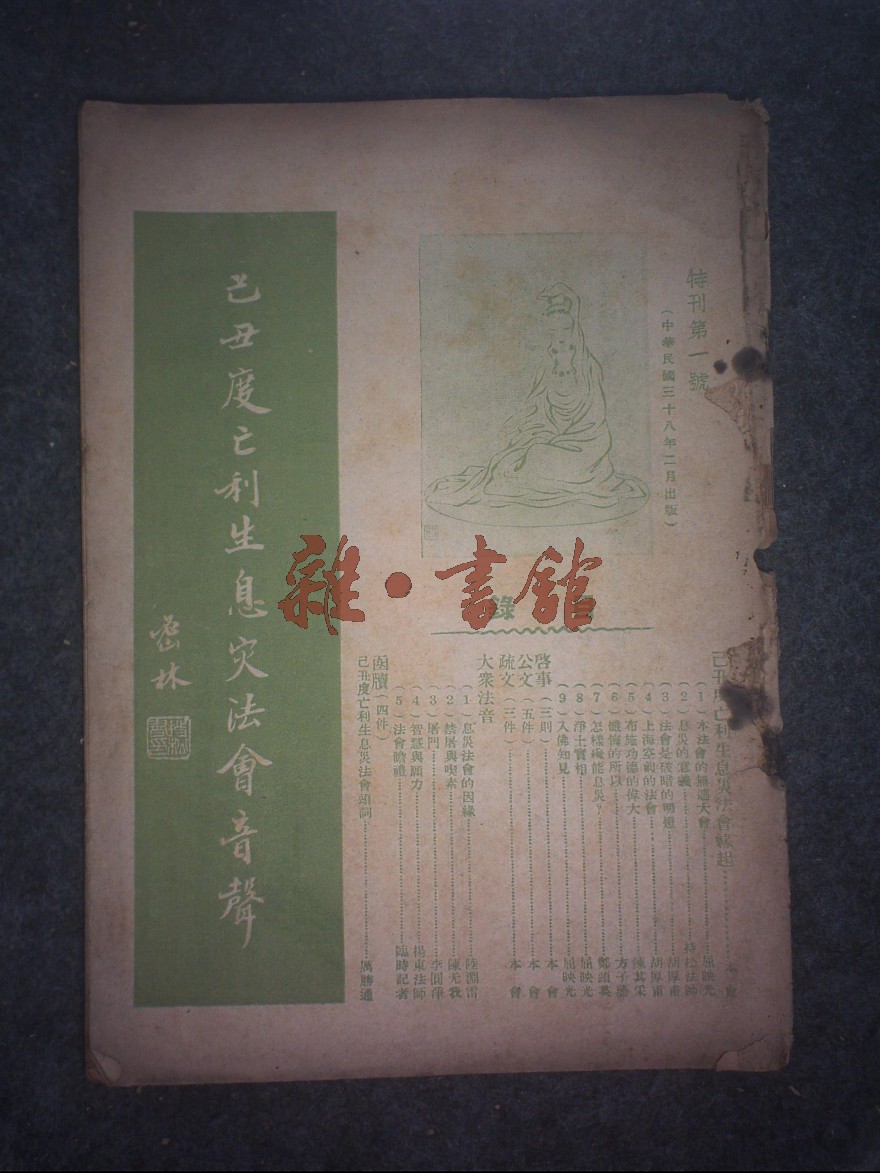 特刊第一號
（中華民國三十八年二月出版）
目錄
己丑度亡利生息災法會緣起……本會
（1）本法會的無遮大會……屈映光
（2）息災的意義……持松法師
（3）法會是破暗的明燈……胡厚甫
（4）上海空前的法會……胡厚甫
（5）布施功德的偉大……陳其采
（6）懺悔的所以……方子藩
（7）怎樣纔能息災？……鄭頌英
（8）淨土實相……屈映光
（9）入佛知見……屈映光
啓事（三則）……本會
公文（五件）……本會
疏文（三件）……本會
大衆法音
（1）息災法會的因緣……陸淵雷
（2）禁屠與喫素……陳无我
（3）屠門……李圓淨
（4）智慧與願力……楊東法師
（5）法會瞻禮……臨時記者
函牘（四件）
己丑度亡利生息災法會頌詞……厲勝通
己丑度亡利生息灾法會音聲
密林
雜·書館